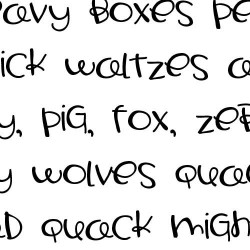 eavy boxes pe
ick waltzes a
y, pig, fox, zeb
y wolves quac
d quack migh